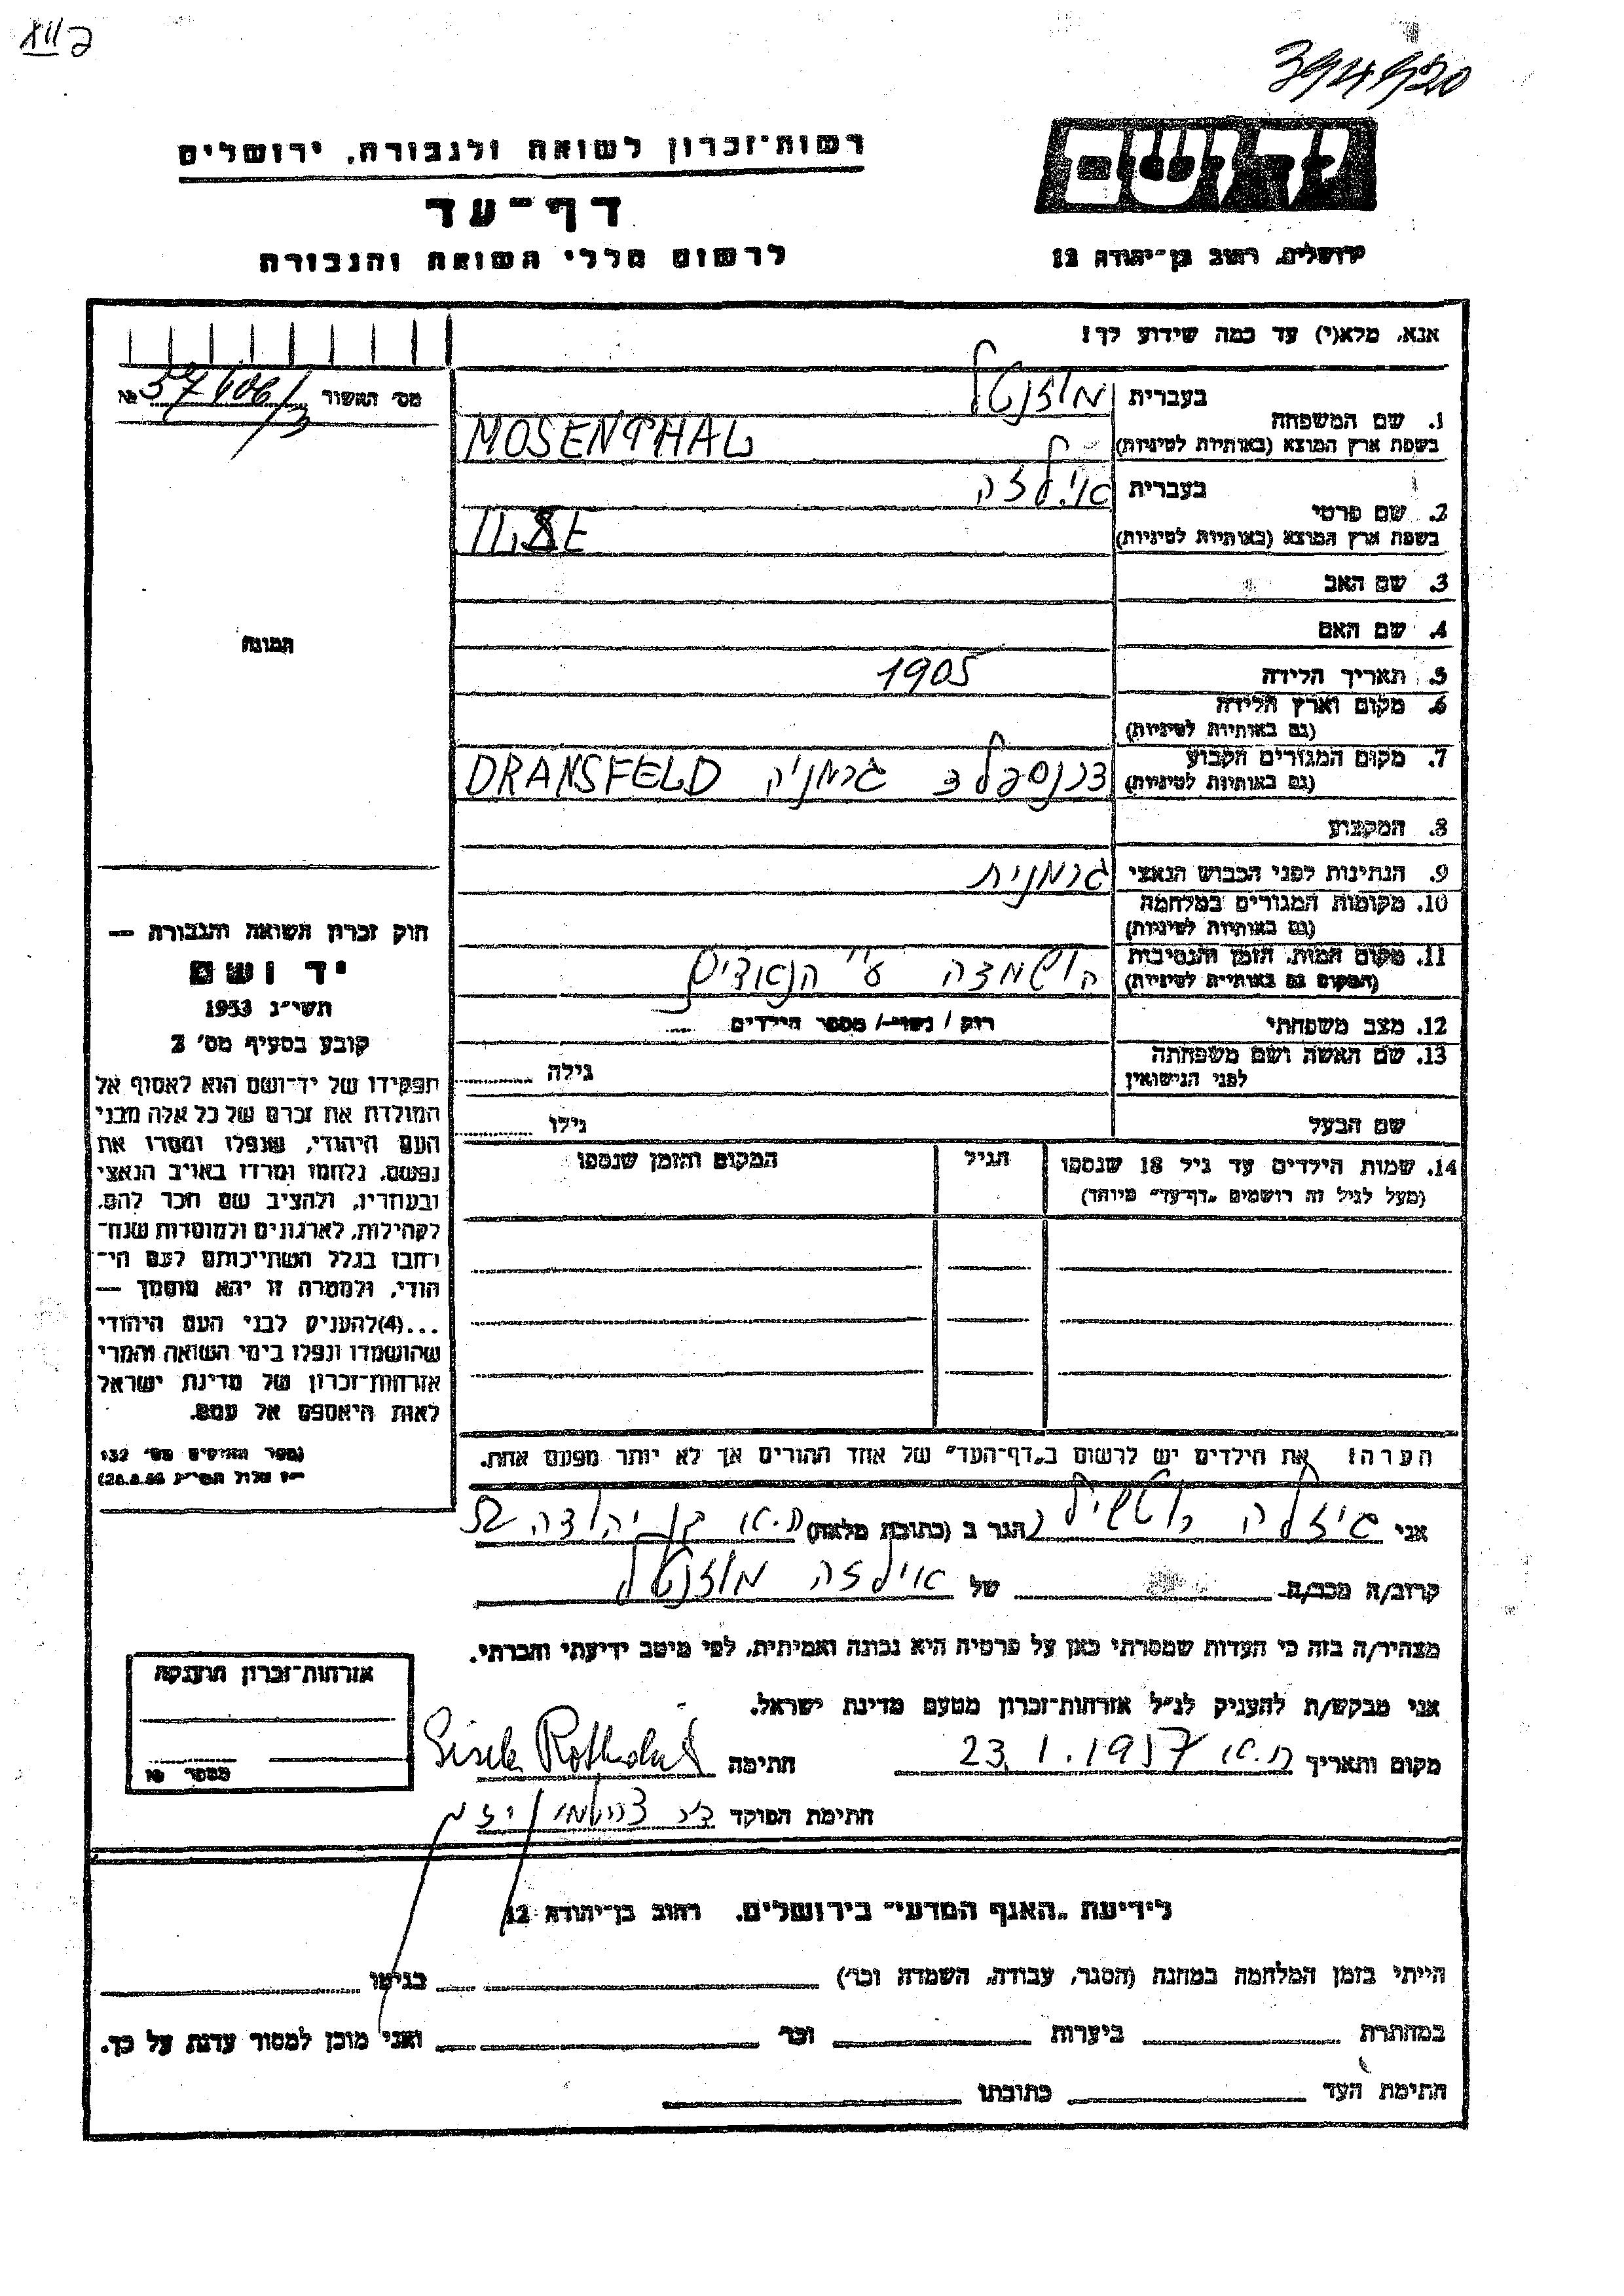 394920
רשות־זכרון לשואה ולגבורה, ירושלים
יד ושם
דף־עד
לרשום חללי השואה והגבורה
ירושלים, רחוב בן־יהודה 12
אנא, מלא(י) עד כמה שידוע לך!
מס׳ האשור № 57606/3
1. שם המשפחה
בעברית מוזנטל
בשפת ארץ המוצא (באותיות לטיניות) MOSENTHAL
2. שם פרטי
בעברית אילזה
בשפת ארץ המוצא (באותיות לטיניות) ILSE
3. שם האב
4. שם האם
תמונה
5. תאריך הלידה 1905
6. מקום וארץ הלידה
(גם באותיות לטיניות)
7. מקום המגורים הקבוע דרנספלד גרמניה DRANSFELD
(גם באותיות לטיניות)
8. המקצוע
9. הנתינות לפני הכבוש הנאצי גרמנית
10. מקומות המגורים במלחמה
(גם באותיות לטיניות)
11. מקום המות, הזמן והנסיבות הושמדה ע״י הנאצים
(המקום גם באותיות לטיניות)
12. מצב משפחתי רווק / נשוי / מספר הילדים
13. שם האשה ושם משפחתה גילה
לפני הנישואין
שם הבעל גילו
14. שמות הילדים עד גיל 18 שנספו הגיל המקום והזמן שנספו
(מעל לגיל זה רושמים „דף־עד״ מיוחד)
חוק זכרון השואה והגבורה —
יד ושם
תשי״ג 1953
קובע בסעיף מס׳ 2
תפקידו של יד־ושם הוא לאסוף אל
המולדת את זכרם של כל אלה מבני
העם היהודי, שנפלו ומסרו את
נפשם, נלחמו ומרדו באויב הנאצי
ובעוזריו, ולהציב שם וזכר להם,
לקהילות, לארגונים ולמוסדות שנח־
רבו בגלל השתייכותם לעם הי־
הודי, ולמטרה זו יהא מוסמך —
...(4)להעניק לבני העם היהודי
שהושמדו ונפלו בימי השואה והמרי
אזרחות־זכרון של מדינת ישראל
לאות היאספם אל עמם.
(ספר החוקים מס׳ 132
הערה! את הילדים יש לרשום ב„דף־העד״ של אחד ההורים אך לא יותר מפעם אחת.
אני גיזלה רוטשילד הגר ב (כתובת מלאה) ת.א. בן יהודה
קרוב/ה מכר/ה של אילזה מוזנטל
מצהיר/ה בזה כי העדות שמסרתי כאן על פרטיה היא נכונה ואמיתית, לפי מיטב ידיעתי והכרתי.
אני מבקש/ת להעניק לנ״ל אזרחות־זכרון מטעם מדינת ישראל.
מקום ותאריך ת.א. 23.1.1957 חתימה
חתימת הפוקד
אזרחות־זכרון הוענקה
מספר №
לידיעת „האגף המדעי״ בירושלים, רחוב בן־יהודה 12
הייתי בזמן המלחמה במחנה (הסגר, עבודה, השמדה וכו׳) בגיטו
במחתרת ביערות וכו׳ ואני מוכן למסור עדות על כך.
חתימת העד כתובתו